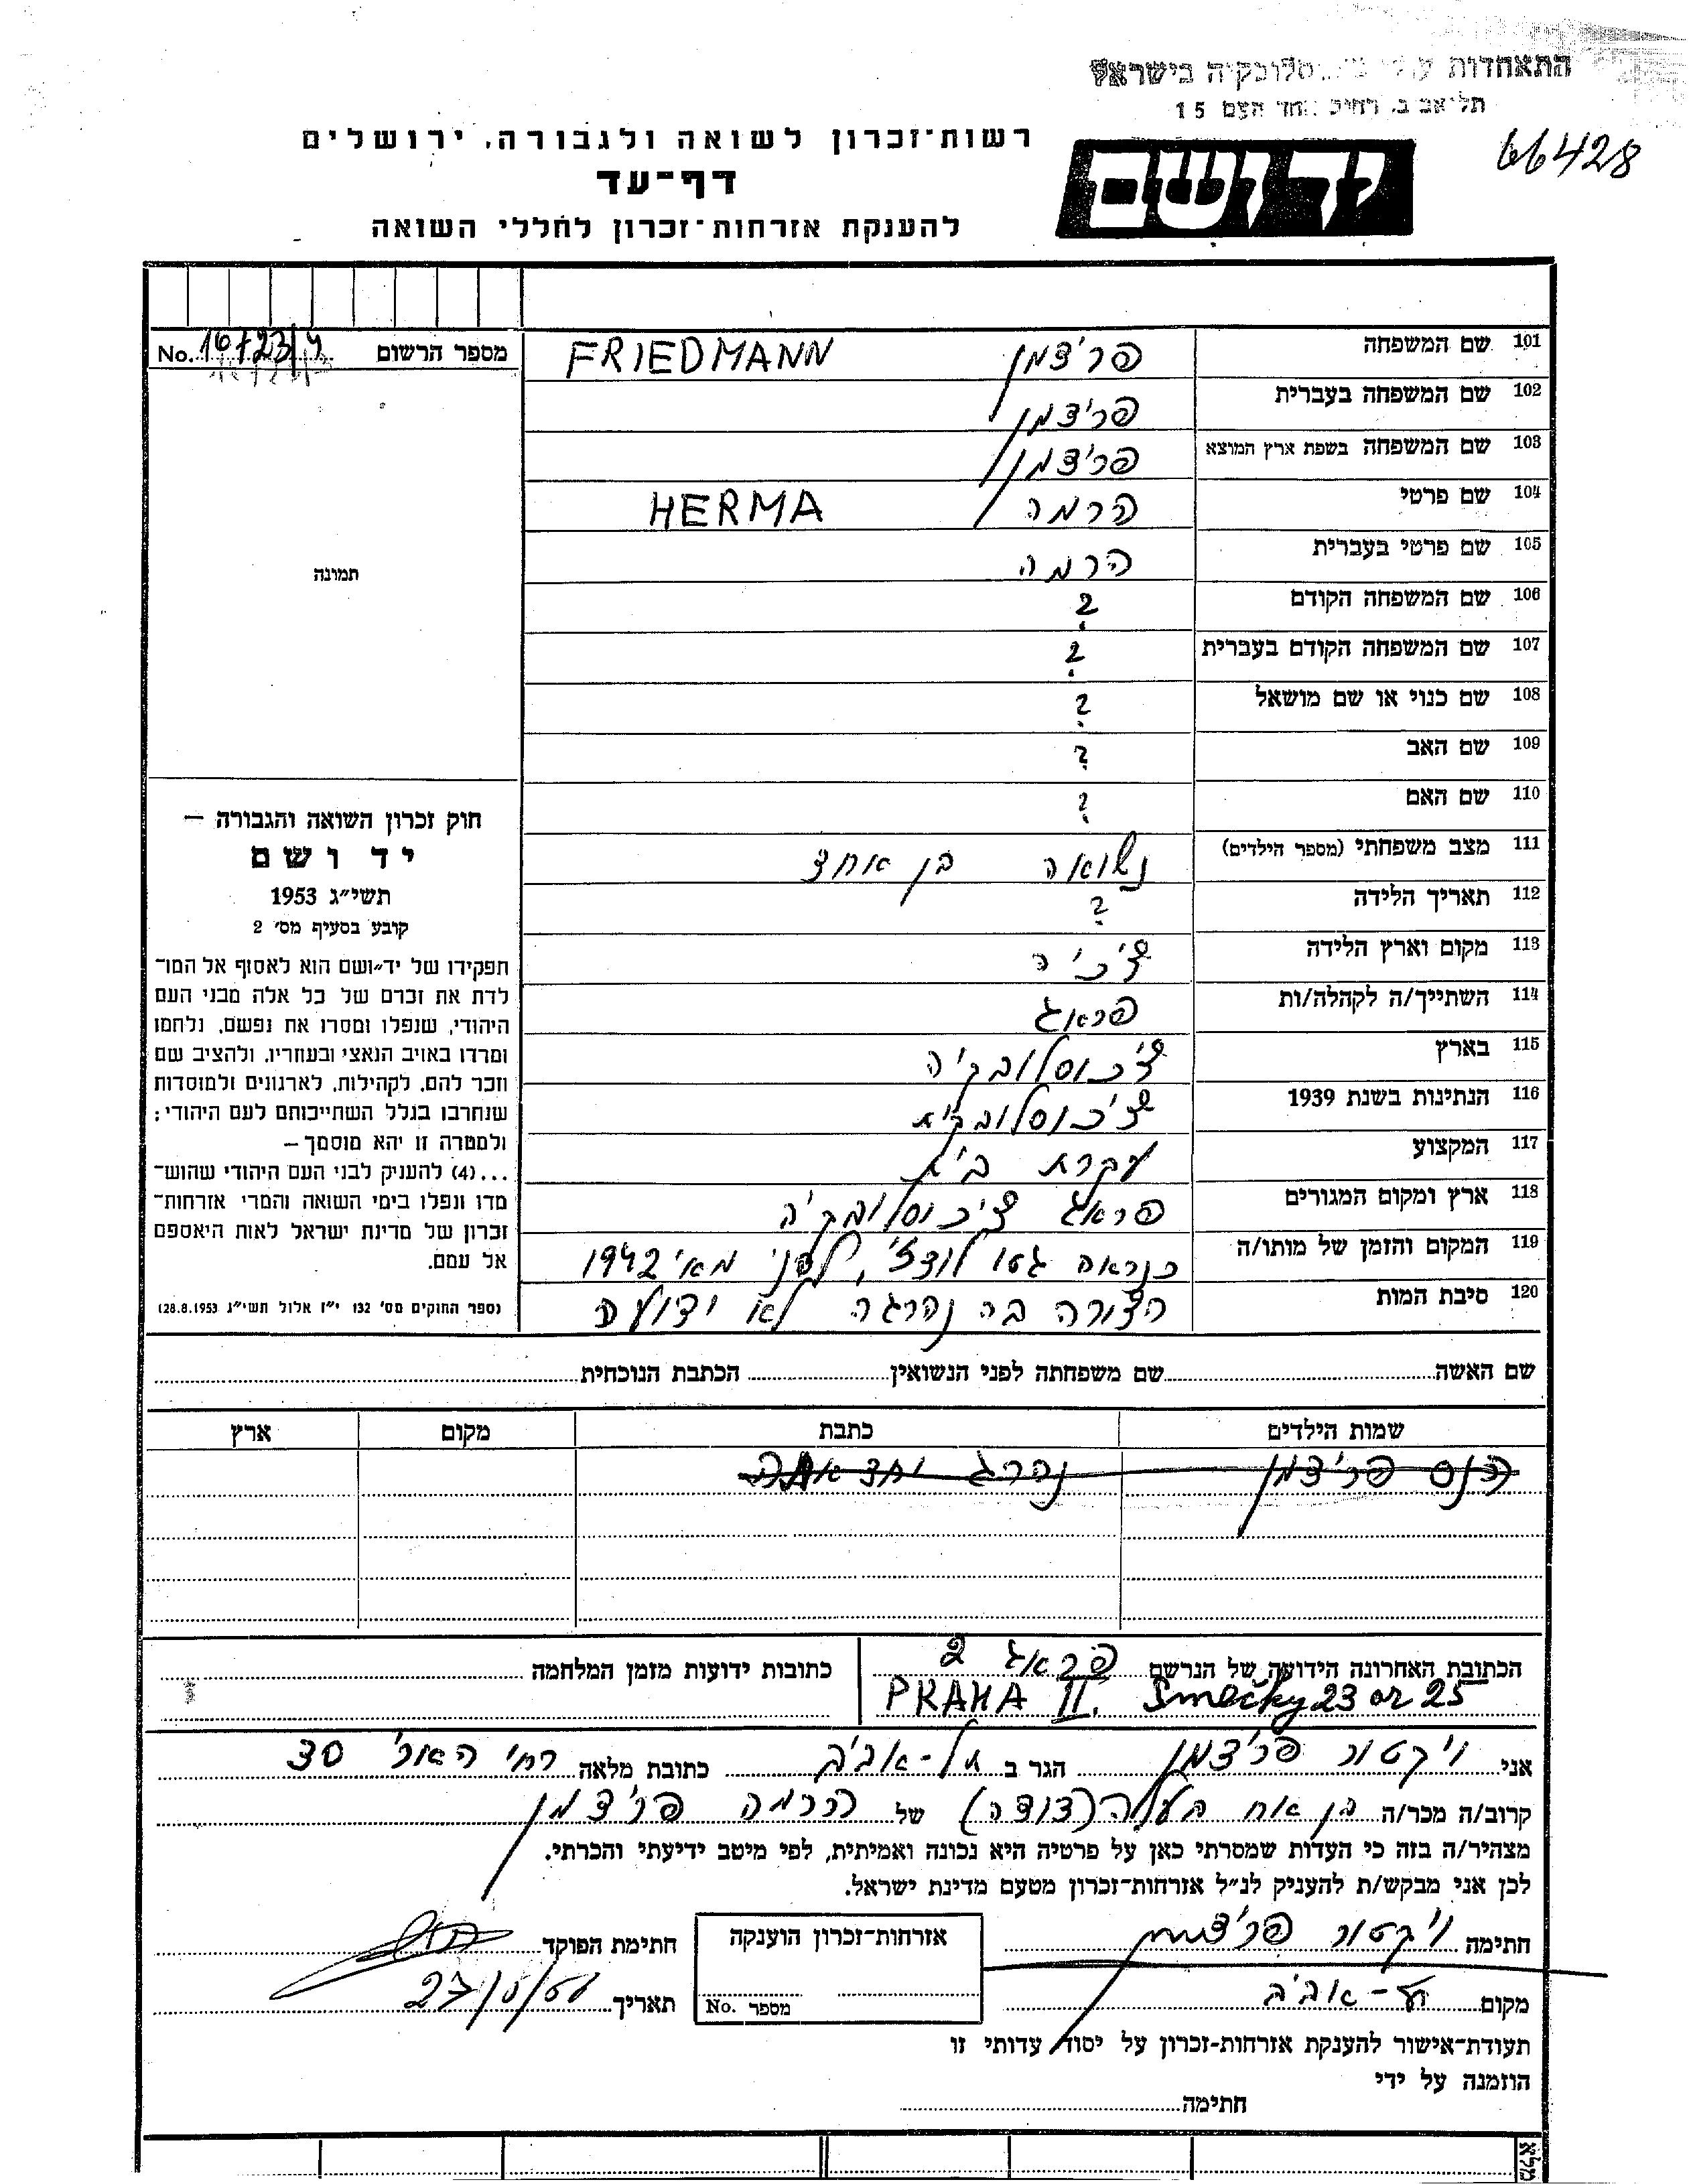 התאחדות עולי צ'כוסלובקיה בישראל
תל־אביב, רחוב אחד העם 15
66428
רשות־זכרון לשואה ולגבורה, ירושלים
יד ושם
דף־עד
להענקת אזרחות־זכרון לחללי השואה
מספר הרשום No. 16/23/4
101 שם המשפחה פרידמן FRIEDMANN
102 שם המשפחה בעברית פרידמן
103 שם המשפחה בשפת ארץ המוצא פרידמן
104 שם פרטי הרמה HERMA
105 שם פרטי בעברית הרמה
106 שם המשפחה הקודם ?
107 שם המשפחה הקודם בעברית ?
108 שם כנוי או שם מושאל ?
109 שם האב ?
110 שם האם ?
111 מצב משפחתי (מספר הילדים) נשואה בן אחד
112 תאריך הלידה ?
113 מקום וארץ הלידה צ'כיה
114 השתייך/ה לקהלה/ות פראג
115 בארץ צ'כוסלובקיה
116 הנתינות בשנת 1939 צ'כוסלובקית
117 המקצוע עקרת בית
118 ארץ ומקום המגורים פראג צ'כוסלובקיה
119 המקום והזמן של מותו/ה כנראה גטו לודז', לפני מאי 1942
120 סיבת המות הצורה בה נהרגה לא ידועה
תמונה
חוק זכרון השואה והגבורה –
יד ושם
תשי״ג 1953
קובע בסעיף מס׳ 2
תפקידו של יד־ושם הוא לאסוף אל המו־
לדת את זכרם של כל אלה מבני העם
היהודי, שנפלו ומסרו את נפשם, נלחמו
ומרדו באויב הנאצי ובעוזריו, ולהציב שם
וזכר להם, לקהילות, לארגונים ולמוסדות
שנחרבו בגלל השתייכותם לעם היהודי;
ולמטרה זו יהא מוסמך –
...(4) להעניק לבני העם היהודי שהוש־
מדו ונפלו בימי השואה והמרי אזרחות־
זכרון של מדינת ישראל לאות היאספם
אל עמם.
(ספר החוקים מס׳ 132 י״ז אלול תשי״ג 28.8.1953)
שם האשה שם משפחתה לפני הנשואין הכתבת הנוכחית
שמות הילדים כתבת מקום ארץ
הנס פרידמן נהרג יחד אתה
הכתובת האחרונה הידועה של הנרשם פראג 2 כתובות ידועות מזמן המלחמה
PRAHA II. Smečky 23 or 25
אני ויקטור פרידמן הגר ב תל-אביב כתובת מלאה רח' האר' 30
קרוב/ה מכר/ה בן אח בעלה (דודה) של הרמה פרידמן
מצהיר/ה בזה כי העדות שמסרתי כאן על פרטיה היא נכונה ואמיתית, לפי מיטב ידיעתי והכרתי.
לכן אני מבקש/ת להעניק לנ״ל אזרחות־זכרון מטעם מדינת ישראל.
חתימה ויקטור פרידמן אזרחות־זכרון הוענקה חתימת הפוקד
מקום תל-אביב מספר No. תאריך
תעודת־אישור להענקת אזרחות-זכרון על יסוד עדותי זו
הוזמנה על ידי
חתימה